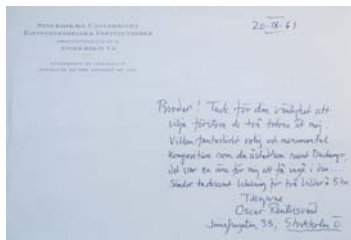 STOCKHOLMS UNIVERSITET
KONSTHISTORISKA INSTITUTIONEN
STOCKHOLM VA
20-IX-63
Broder! Tack för din vänlighet att
vilja förstora de två fotona åt mig.
Vilken fantastiskt rolig och monumental
komposition som du åstadkom
det var en ära för mig att få ingå i den...
Sänder tacksamt betalning för två bilder à 5 kr
Tillgivne
Oscar Reutersvärd
Jungfrugatan 33, Stockholm Ö